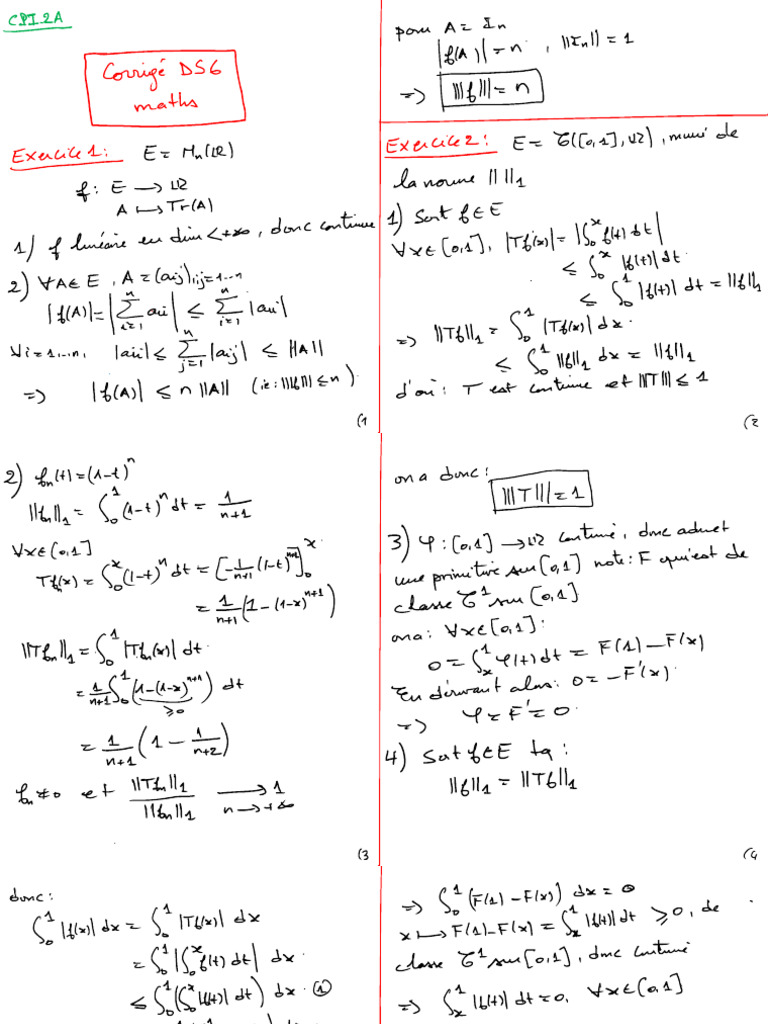 CPI2A
Corrigé DS6
maths
Exercice 1: E = Mn(IR)
f: E → IR
A ↦ Tr(A)
1) f linéaire en dim < +∞, donc continue
2) ∀A∈E, A = (aij)i,j=1…n
|f(A)| = |∑_{i=1}^{n} aii| ≤ ∑_{i=1}^{n} |aii|
∀i=1…n, |aii| ≤ ∑_{j=1}^{n} |aij| ≤ ||A||
⇒ |f(A)| ≤ n ||A|| (ie: |||f||| ≤ n).
(1
pour A = In
|f(A)| = n, ||In|| = 1
⇒ |||f||| = n
Exercice 2: E = C([0,1], IR), muni de
la norme || ||1
1) Soit f∈E
∀x∈[0,1], |Tf(x)| = |∫_0^x f(t) dt|
≤ ∫_0^x |f(t)| dt
≤ ∫_0^1 |f(t)| dt = ||f||1
⇒ ||Tf||1 = ∫_0^1 |Tf(x)| dx
≤ ∫_0^1 ||f||1 dx = ||f||1
d'où: T est continue et |||T||| ≤ 1
(2
2) fn(t) = (1-t)^n
||fn||1 = ∫_0^1 (1-t)^n dt = 1/(n+1)
∀x∈[0,1]
Tfn(x) = ∫_0^x (1-t)^n dt = [-1/(n+1) (1-t)^{n+1}]_0^x
= 1/(n+1) (1-(1-x)^{n+1})
||Tfn||1 = ∫_0^1 |Tfn(x)| dt
= 1/(n+1) ∫_0^1 (1-(1-x)^{n+1}) dt
≥0
= 1/(n+1) (1 - 1/(n+2))
fn ≠ 0 et ||Tfn||1 / ||fn||1 → 1
n→+∞
(3
on a donc: |||T||| = 1
3) φ: [0,1] → IR continue, donc admet
une primitive sur [0,1] notée: F qui est de
classe C^1 sur [0,1]
on a: ∀x∈[0,1]:
0 = ∫_x^1 φ(t) dt = F(1) - F(x)
En dérivant alors: 0 = -F'(x).
⇒ φ = F' = 0.
4) Soit f∈E tq:
||f||1 = ||Tf||1
(4
donc:
∫_0^1 |f(x)| dx = ∫_0^1 |Tf(x)| dx
= ∫_0^1 |∫_0^x f(t) dt| dx.
≤ ∫_0^1 (∫_0^x |f(t)| dt) dx. ①
⇒ ∫_0^1 (F(1) - F(x)) dx = 0
x ↦ F(1) - F(x) = ∫_x^1 |f(t)| dt ≥ 0, de
classe C^1 sur [0,1], donc continue
⇒ ∫_x^1 |f(t)| dt = 0, ∀x∈[0,1]